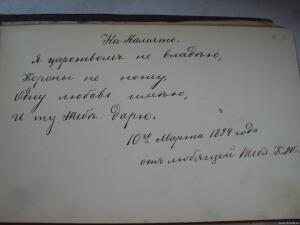 На Память.
Я царствомъ не владѣю,
Короны не ношу,
Одну любовь имѣю,
И ту Тебѣ дарю.
10го Марта 1894 года
отъ любящей Тебя